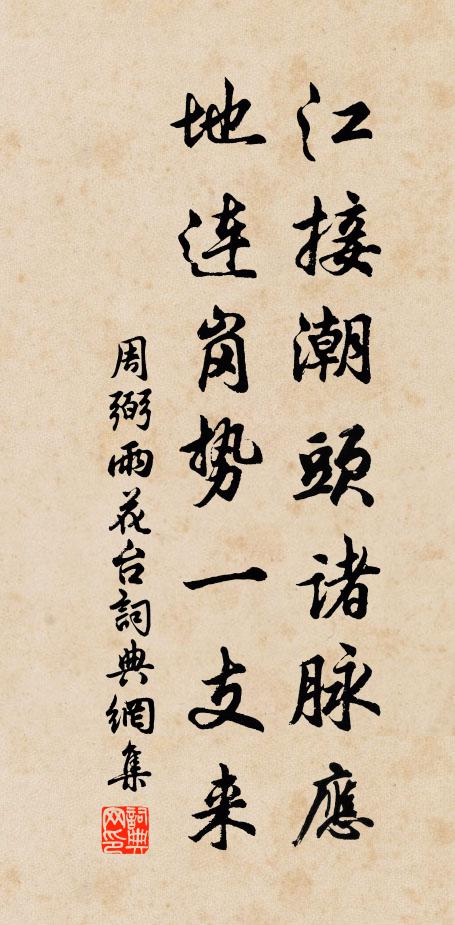 江接潮頭诸脉應
地连崗势一支来
周弼雨花台詞典網集
詞典网印